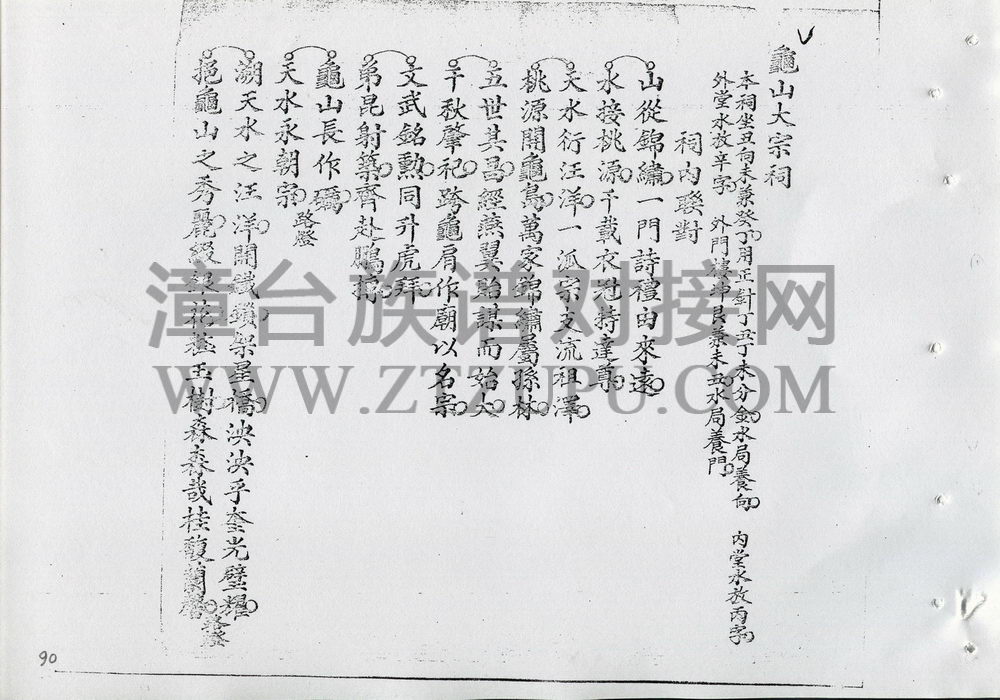 龜山大宗祠
本祠坐丑向未兼癸丁用正針丁丑丁未分金水局養向 內堂水放丙字
外堂水放辛字 外門樓坤艮兼未丑水局養門
祠內聯對
山從錦繡一門詩禮由來遠
水接桃源千載衣冠特達尊
天水衍汪洋一派宗支流祖澤
桃源開龜島萬家錦繡屬孫林
五世其昌經燕翼貽謀而始大
千秋肇祀跨龜肩作廟以名宗
文武銘勳同升虎拜
弟昆射策齊赴鵬摶
龜山長作礪
天水永朝宗 路燈
溯天水之汪洋開鐵鎖架星橋泱泱乎奎光璧耀
挹龜山之秀麗級銀花莊玉樹森森哉桂馥蘭馨 路燈
漳台族谱对接网
WWW.ZTZUPU.COM
90